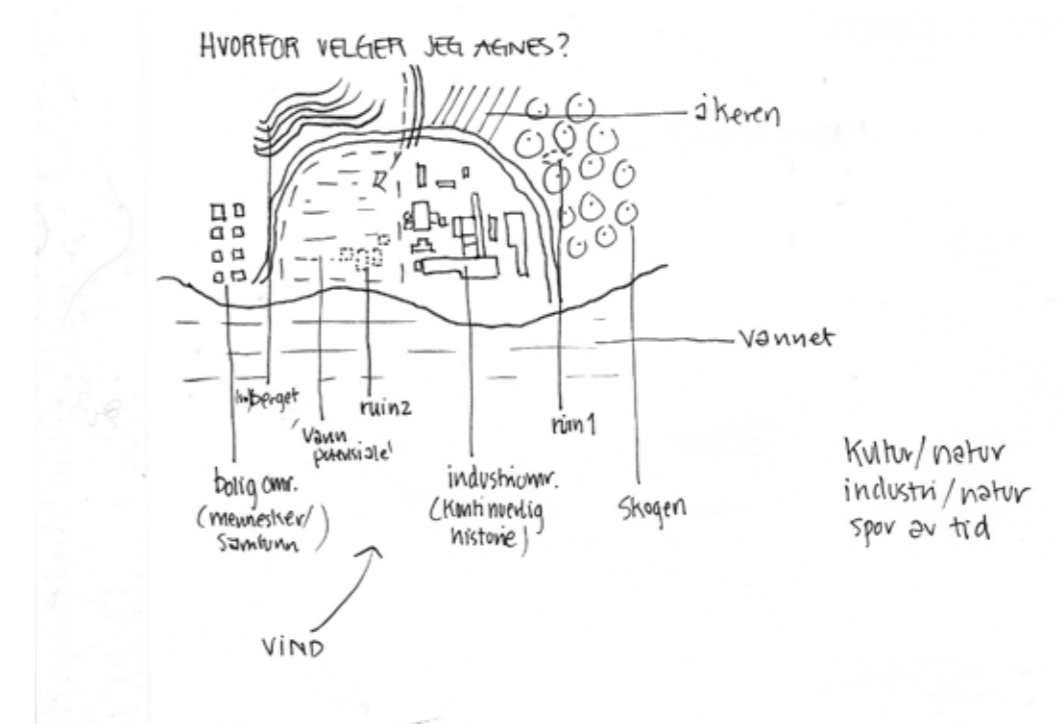 HVORFOR VELGER JEG AGNES?
åkeren
vannet
berget
ruin2
ruin1
'vann
potensiale'
bolig omr.
(mennesker/
samfunn)
industriomr.
(kontinuerlig
historie)
skogen
Kultur/natur
industri/natur
spor av tid
VIND